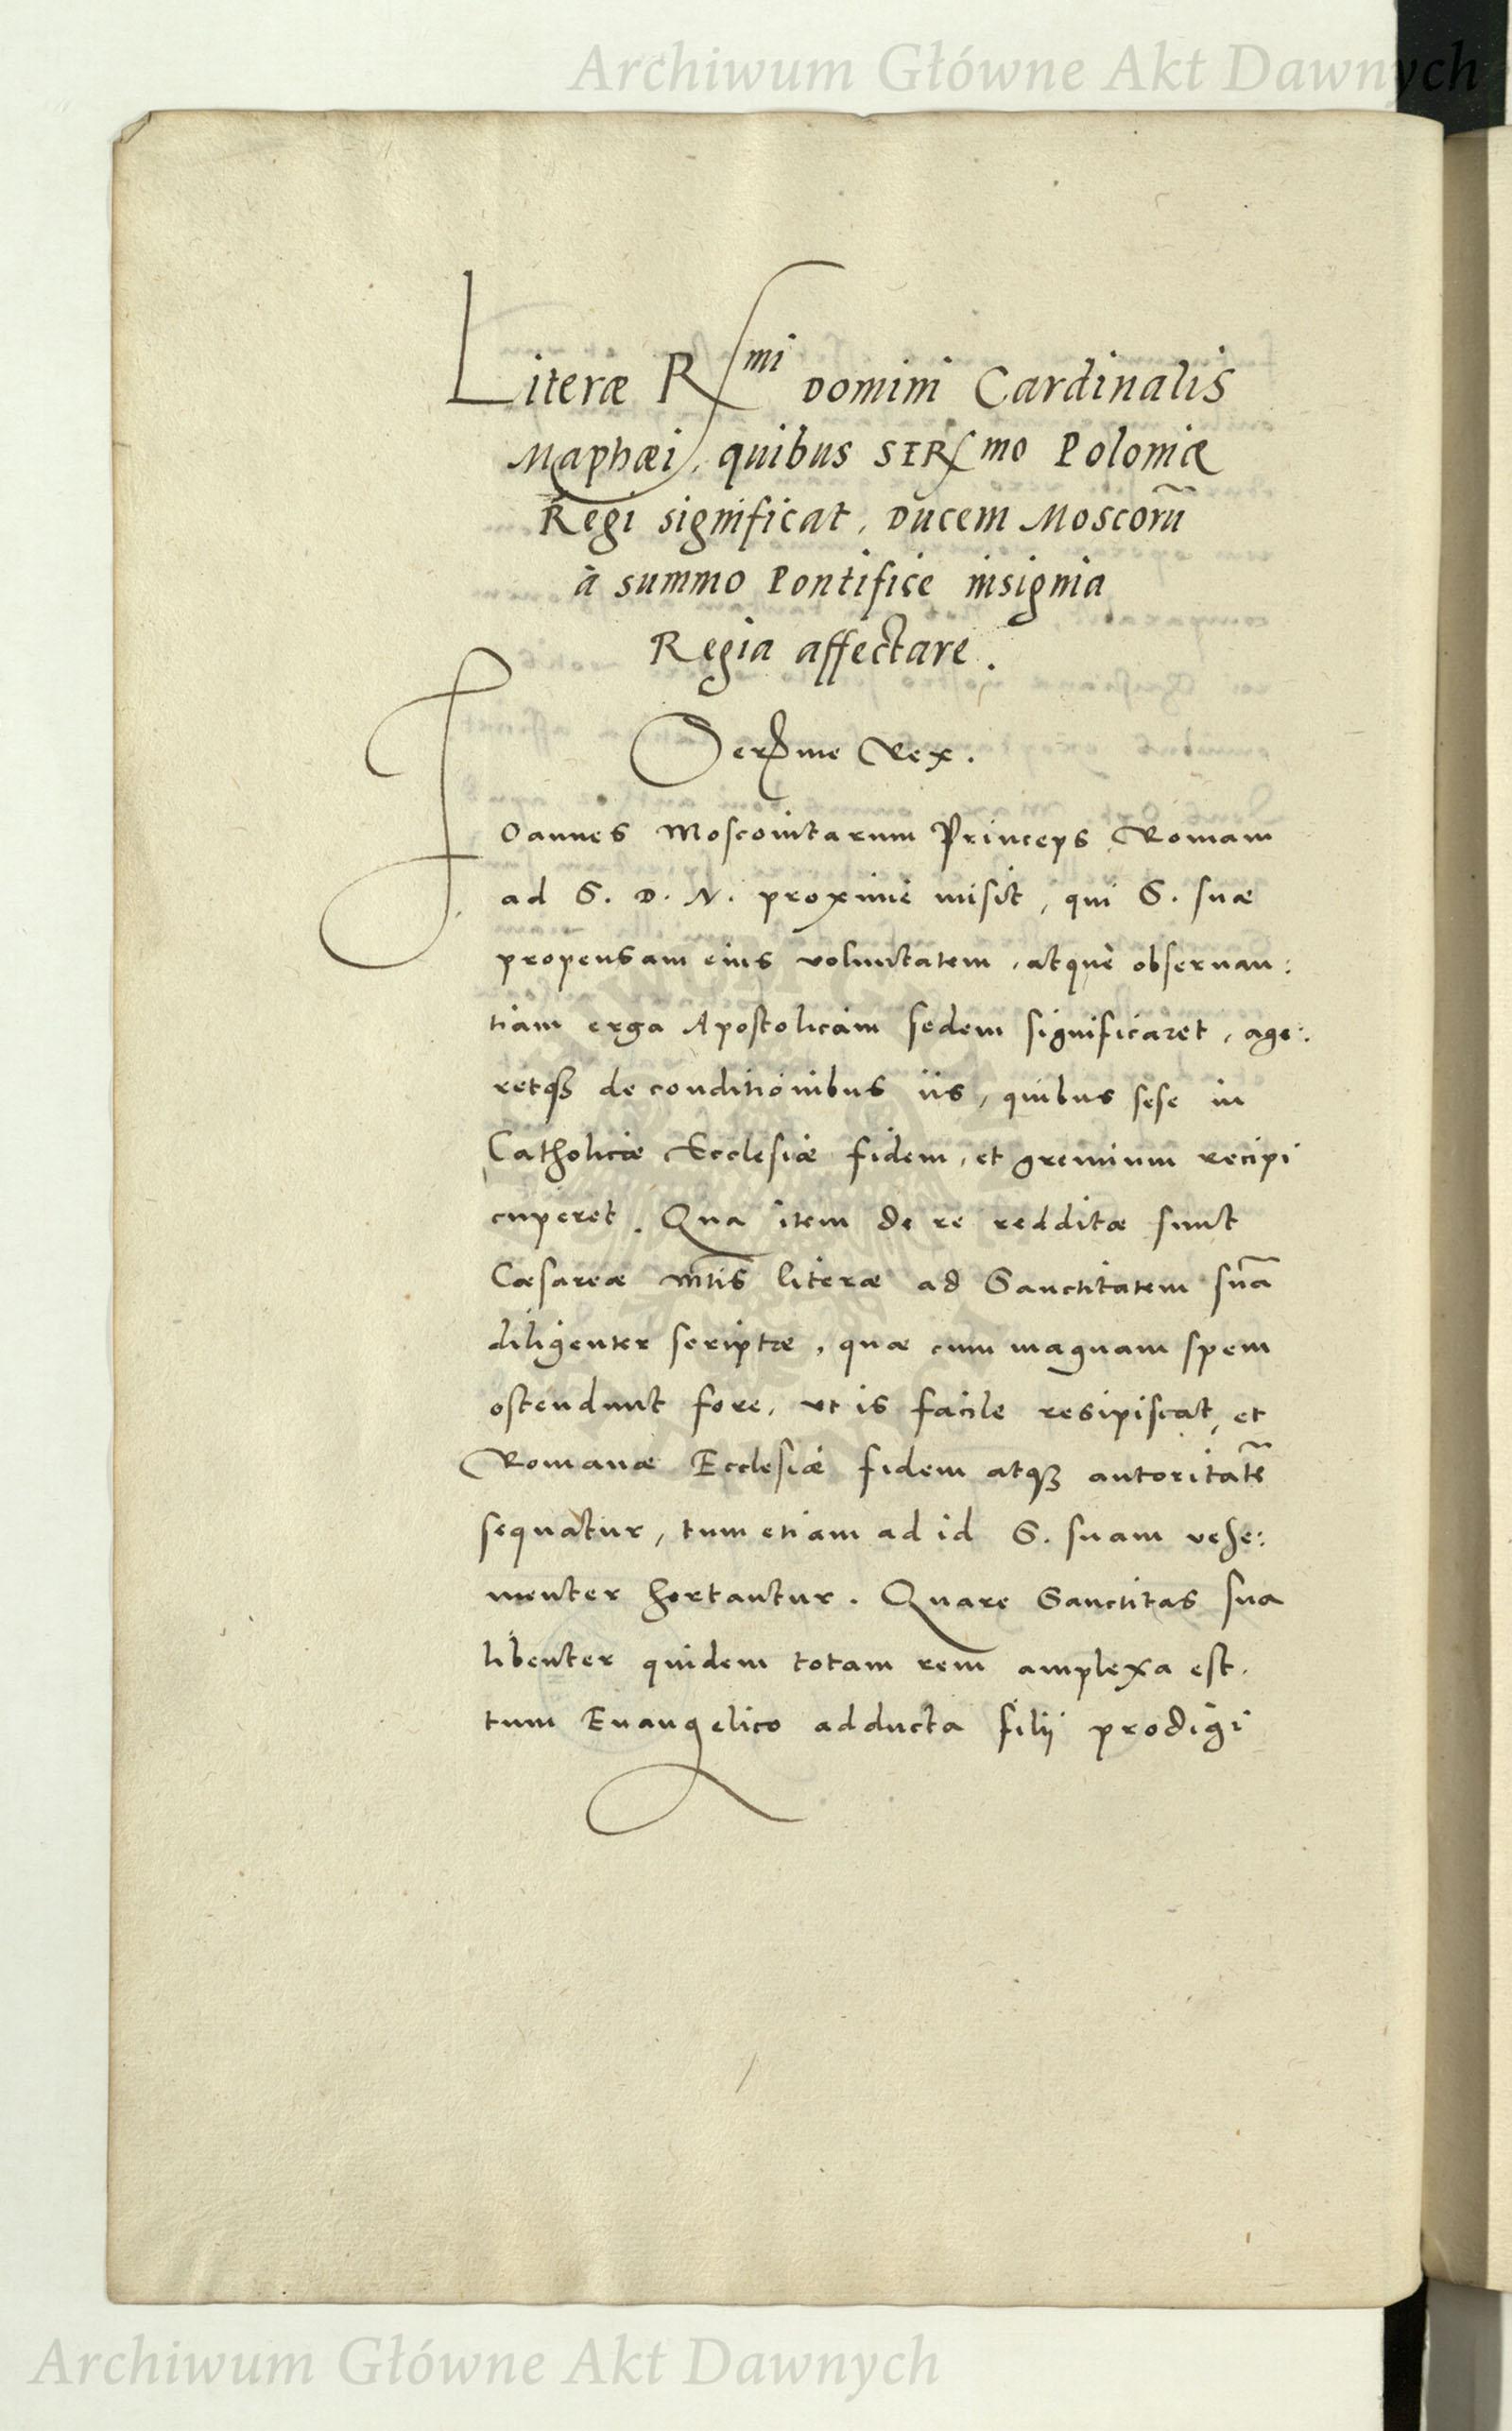 Archiwum Główne Akt Dawnych
Literæ Rſmi Domini Cardinalis
Maphæi, quibus SERſmo Poloniæ
Regi significat, Ducem Moscorũ
à summo Pontifice insignia
Regia affectare.
Serſſme Rex.
Ioannes Moscouitarum Princeps Romam
ad S. D. N. proximè misit, qui S. suæ
propensam eius voluntatem, atquè obseruan:
tiam erga Apostolicam sedem significaret, age:
retqꝫ de conditionibus iis, quibus sese in
Catholicæ Ecclesiæ fidem, et gremium recipi
cuperet. Qua item de re redditæ sunt
Cæsareæ Mtis literæ ad Sanctitatem suã
diligenter scriptæ, quæ cum magnam spem
ostendunt fore, ut is facile resipiscat, et
Romanæ Ecclesiæ fidem atqꝫ autoritatẽ
sequatur, tum etiam ad id S. suam vehe:
menter hortantur. Quare Sanctitas sua
libenter quidem totam rem amplexa est.
tum Euangelico adducta filij prodigi
Archiwum Główne Akt Dawnych